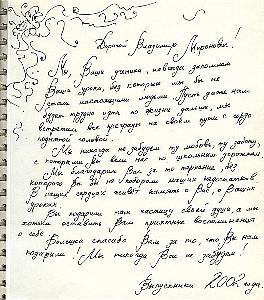 Дорогой Владимир Миронович!
Мы, Ваши ученики, навсегда запомним
Ваши уроки, без которых мы бы не
стали настоящими людьми. Пусть даже нам
будет трудно идти по жизни дальше, мы
встретим все преграды на своём пути с гордо
поднятой головой.
Мы никогда не забудем ту любовь, ту заботу,
с которыми Вы вели нас по школьным дорожкам
Мы благодарим Вас за то терпение, без
которого Вы бы не побороли наших недостатков.
В наших сердцах живёт память о Вас, о Ваших
уроках.
Вы подарили нам частицу своей души, а мы
хотим оставить Вам приятные воспоминания
о себе.
Большое спасибо Вам за то, что Вы нам
подарили! Мы никогда Вас не забудем!
Выпускники 2002 года.